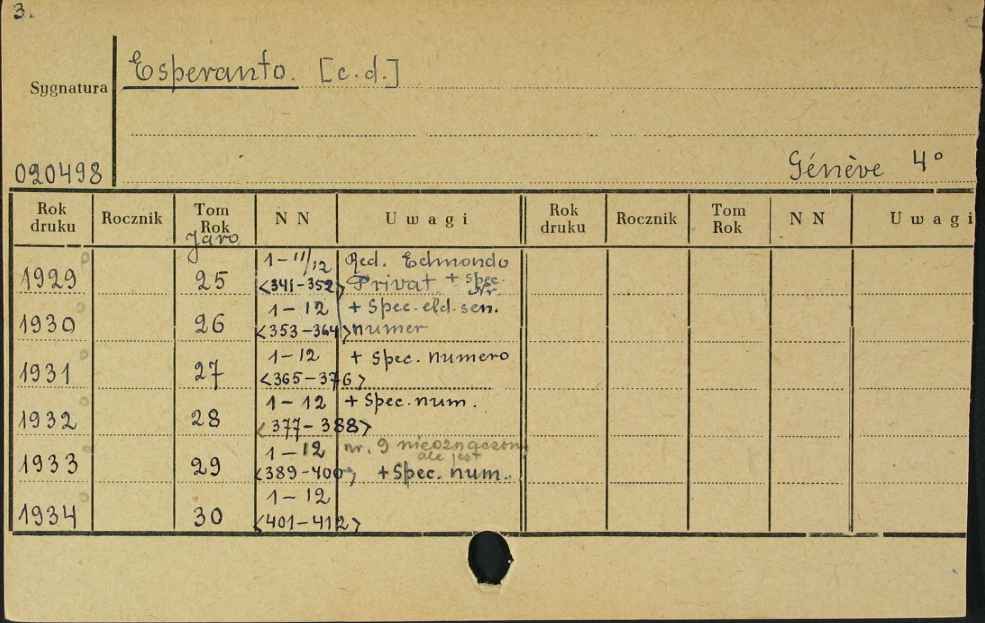 3.
Sygnatura
Esperanto. [c.d.]
020498
Génève 4°
Rok druku Rocznik Tom Rok N N Uwagi Rok druku Rocznik Tom Rok N N Uwagi
Jaro
1929 25 1-11/12 <341-352> Red. Edmondo Privat + spec. nr.
1930 26 1-12 <353-364> + Spec. eld. sen. numer
1931 27 1-12 <365-376> + Spec. numero
1932 28 1-12 <377-388> + Spec. num.
1933 29 1-12 <389-400> nr. 9 nieoznaczony ale jest + Spec. num.
1934 30 1-12 <401-412>